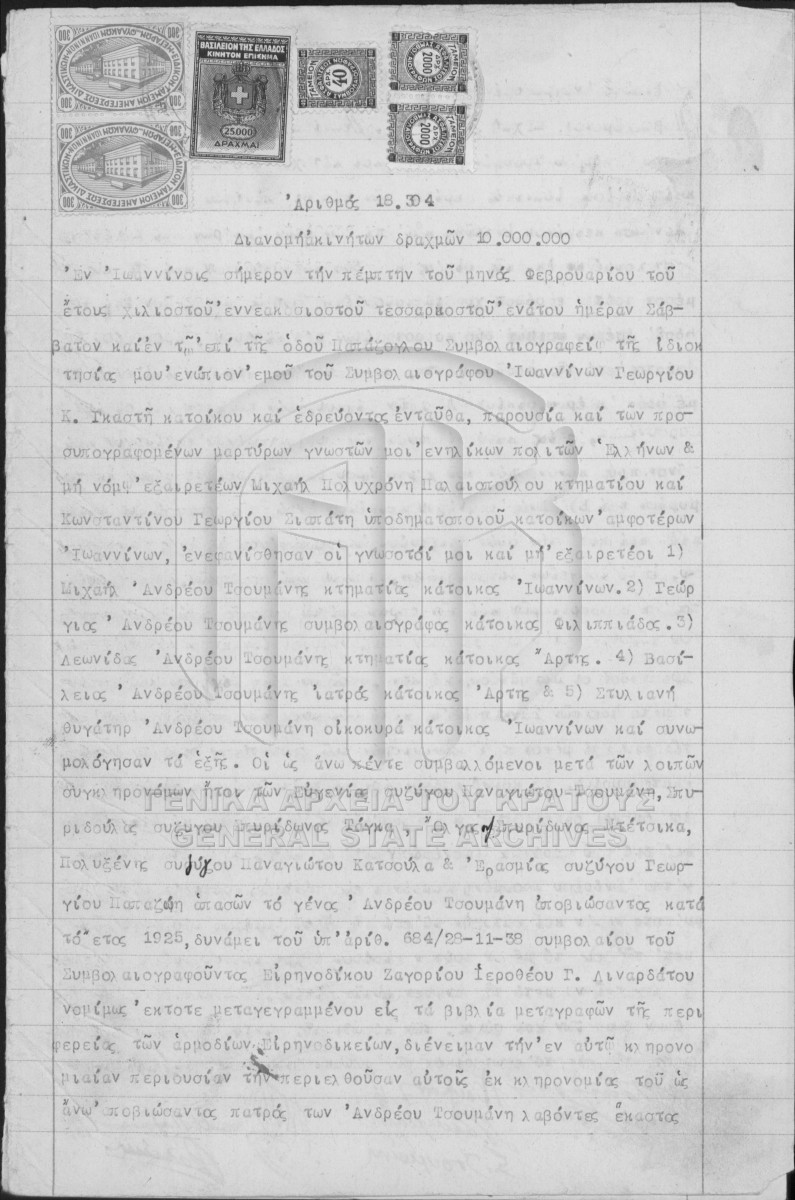 ΒΑΣΙΛΕΙΟΝ ΤΗΣ ΕΛΛΑΔΟΣ
ΚΙΝΗΤΟΝ ΕΠΙΣΗΜΑ
25000
ΔΡΑΧΜΑΙ
300
300
300
300
40
ΤΑΜΕΙΟΝ
2000
ΤΑΜΕΙΟΝ
2000
Ἀριθμός 18.304
Διανομήἀκινήτων δραχμῶν 10.000.000
Ἐν Ἰωαννίνοις σήμερον τήν πέμπτην τοῦ μηνός Φεβρουαρίου τοῦ
ἔτους χιλιοστοῦ ἐννεακοσιοστοῦ τεσσαρκοστοῦ ἐνάτου ἡμέραν Σάβ-
βατον καίἐν τῷ ἐπί τῆς ὁδοῦ Παπάζογλου Συμβολαιογραφείῳ τῆς ἰδιοκ
τησίας μου ἐνώπιον ἐμοῦ τοῦ Συμβολαιογράφου Ἰωαννίνων Γεωργίου
Κ. Γκαστῆ κατοίκου καί ἑδρεύοντος ἐνταῦθα, παρουσία καί των προ-
συπογραφομένων μαρτύρων γνωστῶν μοι ἐνηλίκων πολιτῶν Ἑλλήνων &
μή νόμῳ ἐξαιρετέων Μιχαήλ Πολυχρόνη Παλαιοπούλου κτηματίου καί
Κωνσταντίνου Γεωργίου Σιαπάτη ὑποδηματοποιοῦ κατοίκων ἀμφοτέρων
Ἰωαννίνων, ἐνεφανίσθησαν οἱ γνωσοτόί μοι καί μή ἐξαιρετέοι 1)
Μιχαήλ Ἀνδρέου Τσουμάνης κτηματίας κάτοικος Ἰωαννίνων.2) Γεώρ
γιος Ἀνδρέου Τσουμάνης συμβολαιογράφος κάτοικος Φιλιππιάδος.3)
Λεωνίδας Ἀνδρέου Τσουμάνης κτηματίας κάτοικος Ἄρτης. 4) Βασί-
λειος Ἀνδρέου Τσουμάνης ἰατρός κάτοικος Ἄρτης & 5) Στυλιανή
θυγάτηρ Ἀνδρέου Τσουμάνη οἰκοκυρά κάτοικος Ἰωαννίνων καί συνω-
μολόγησαν τά ἑξῆς. Οἱ ὡς ἄνω πέντε συμβαλλόμενοι μετά τῶν λοιπῶν
συγκληρονόμων ἤτοι τῶν Εὐγενίας συζύγου Παναγιώτου Τσουμάνη, Σπυ-
ριδούλας συζυγου Σπυρίδωνος Τάγκα, Ὄλγας Σπυρίδωνος Ντέτσικα,
Πολυξένης συζύγου Παναγιώτου Κατσούλα & Ἐρασμίας συζύγου Γεωρ-
γίου Παπαζώη ἁπασῶν τό γένος Ἀνδρέου Τσουμάνη ἀποβιώσαντος κατά
τό ἔτος 1925, δυνάμει τοῦ ὑπ' ἀριθ. 684/28-11-38 συμβολαίου τοῦ
Συμβολαιογραφοῦντος Εἰρηνοδίκου Ζαγορίου Ἱεροθέου Γ. Λιναρδάτου
νομίμως ἔκτοτε μεταγεγραμμένου εἰς τά βιβλία μεταγραφῶν τῆς περι
φερείας τῶν ἁρμοδίων Εἰρηνοδικείων, διένειμαν τήν ἐν αὐτῷ κληρονο
μιαίαν περιουσίαν τήν περιελθοῦσαν αὐτοῖς ἐκ κληρονομίας τοῦ ὡς
ἄνω ἀποβιώσαντος πατρός των Ἀνδρέου Τσουμάνη λαβόντες ἕκαστος
ΓΕΝΙΚΑ ΑΡΧΕΙΑ ΤΟΥ ΚΡΑΤΟΥΣ
GENERAL STATE ARCHIVES